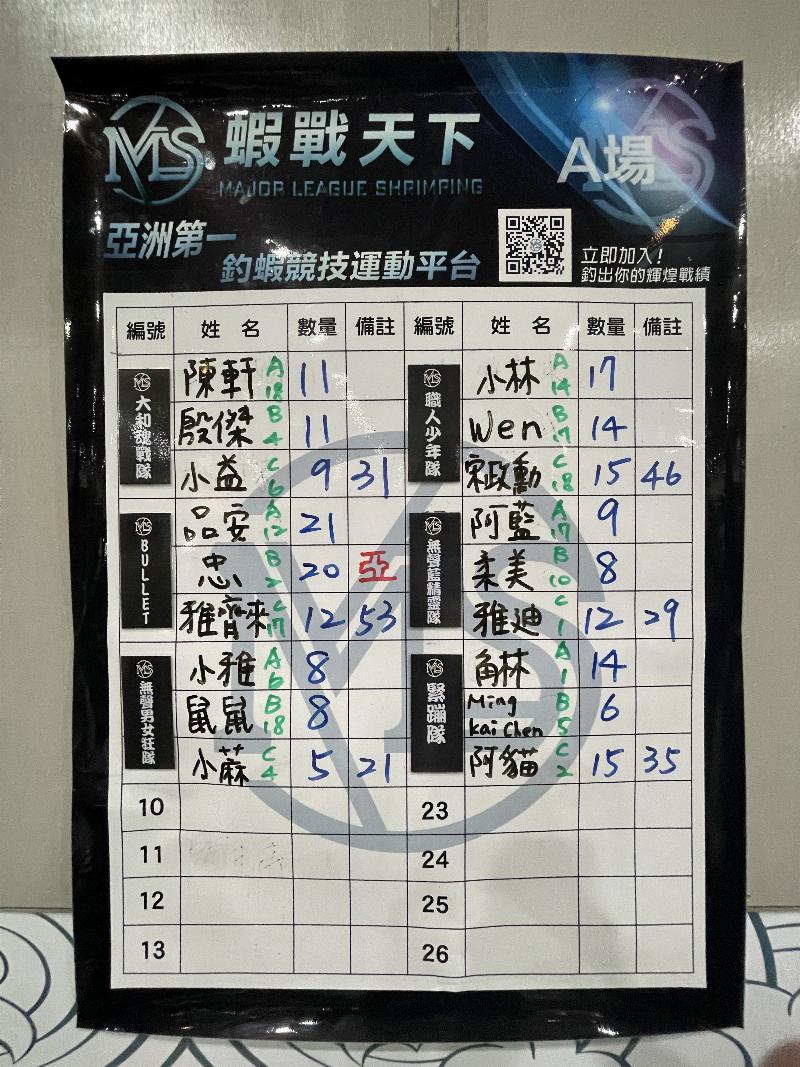 MLS 蝦戰天下
MAJOR LEAGUE SHRIMPING
A場
亞洲第一
釣蝦競技運動平台
立即加入！
釣出你的輝煌戰績
編號 姓名 數量 備註 編號 姓名 數量 備註
大和魂戰隊
陳軒 A 18 11
殷傑 B 4 11
小益 C 6 9 31
BULLET
品安 A 12 21
忠 B 2 20 亞
雅齊來 C 17 12 53
無聲男女狂隊
小雅 A 6 8
鼠鼠 B 18 8
小蔴 C 4 5 21
10
11
12
13
職人少年隊
小林 A 14 17
Wen B 17 14
宋政勳 C 18 15 46
無聲藍精靈隊
阿藍 A 17 9
柔美 B 10 8
雅迪 C 1 12 29
緊蹦隊
角林 A 1 14
Ming
Kai Chen B 5 6
阿貓 C 2 15 35
23
24
25
26